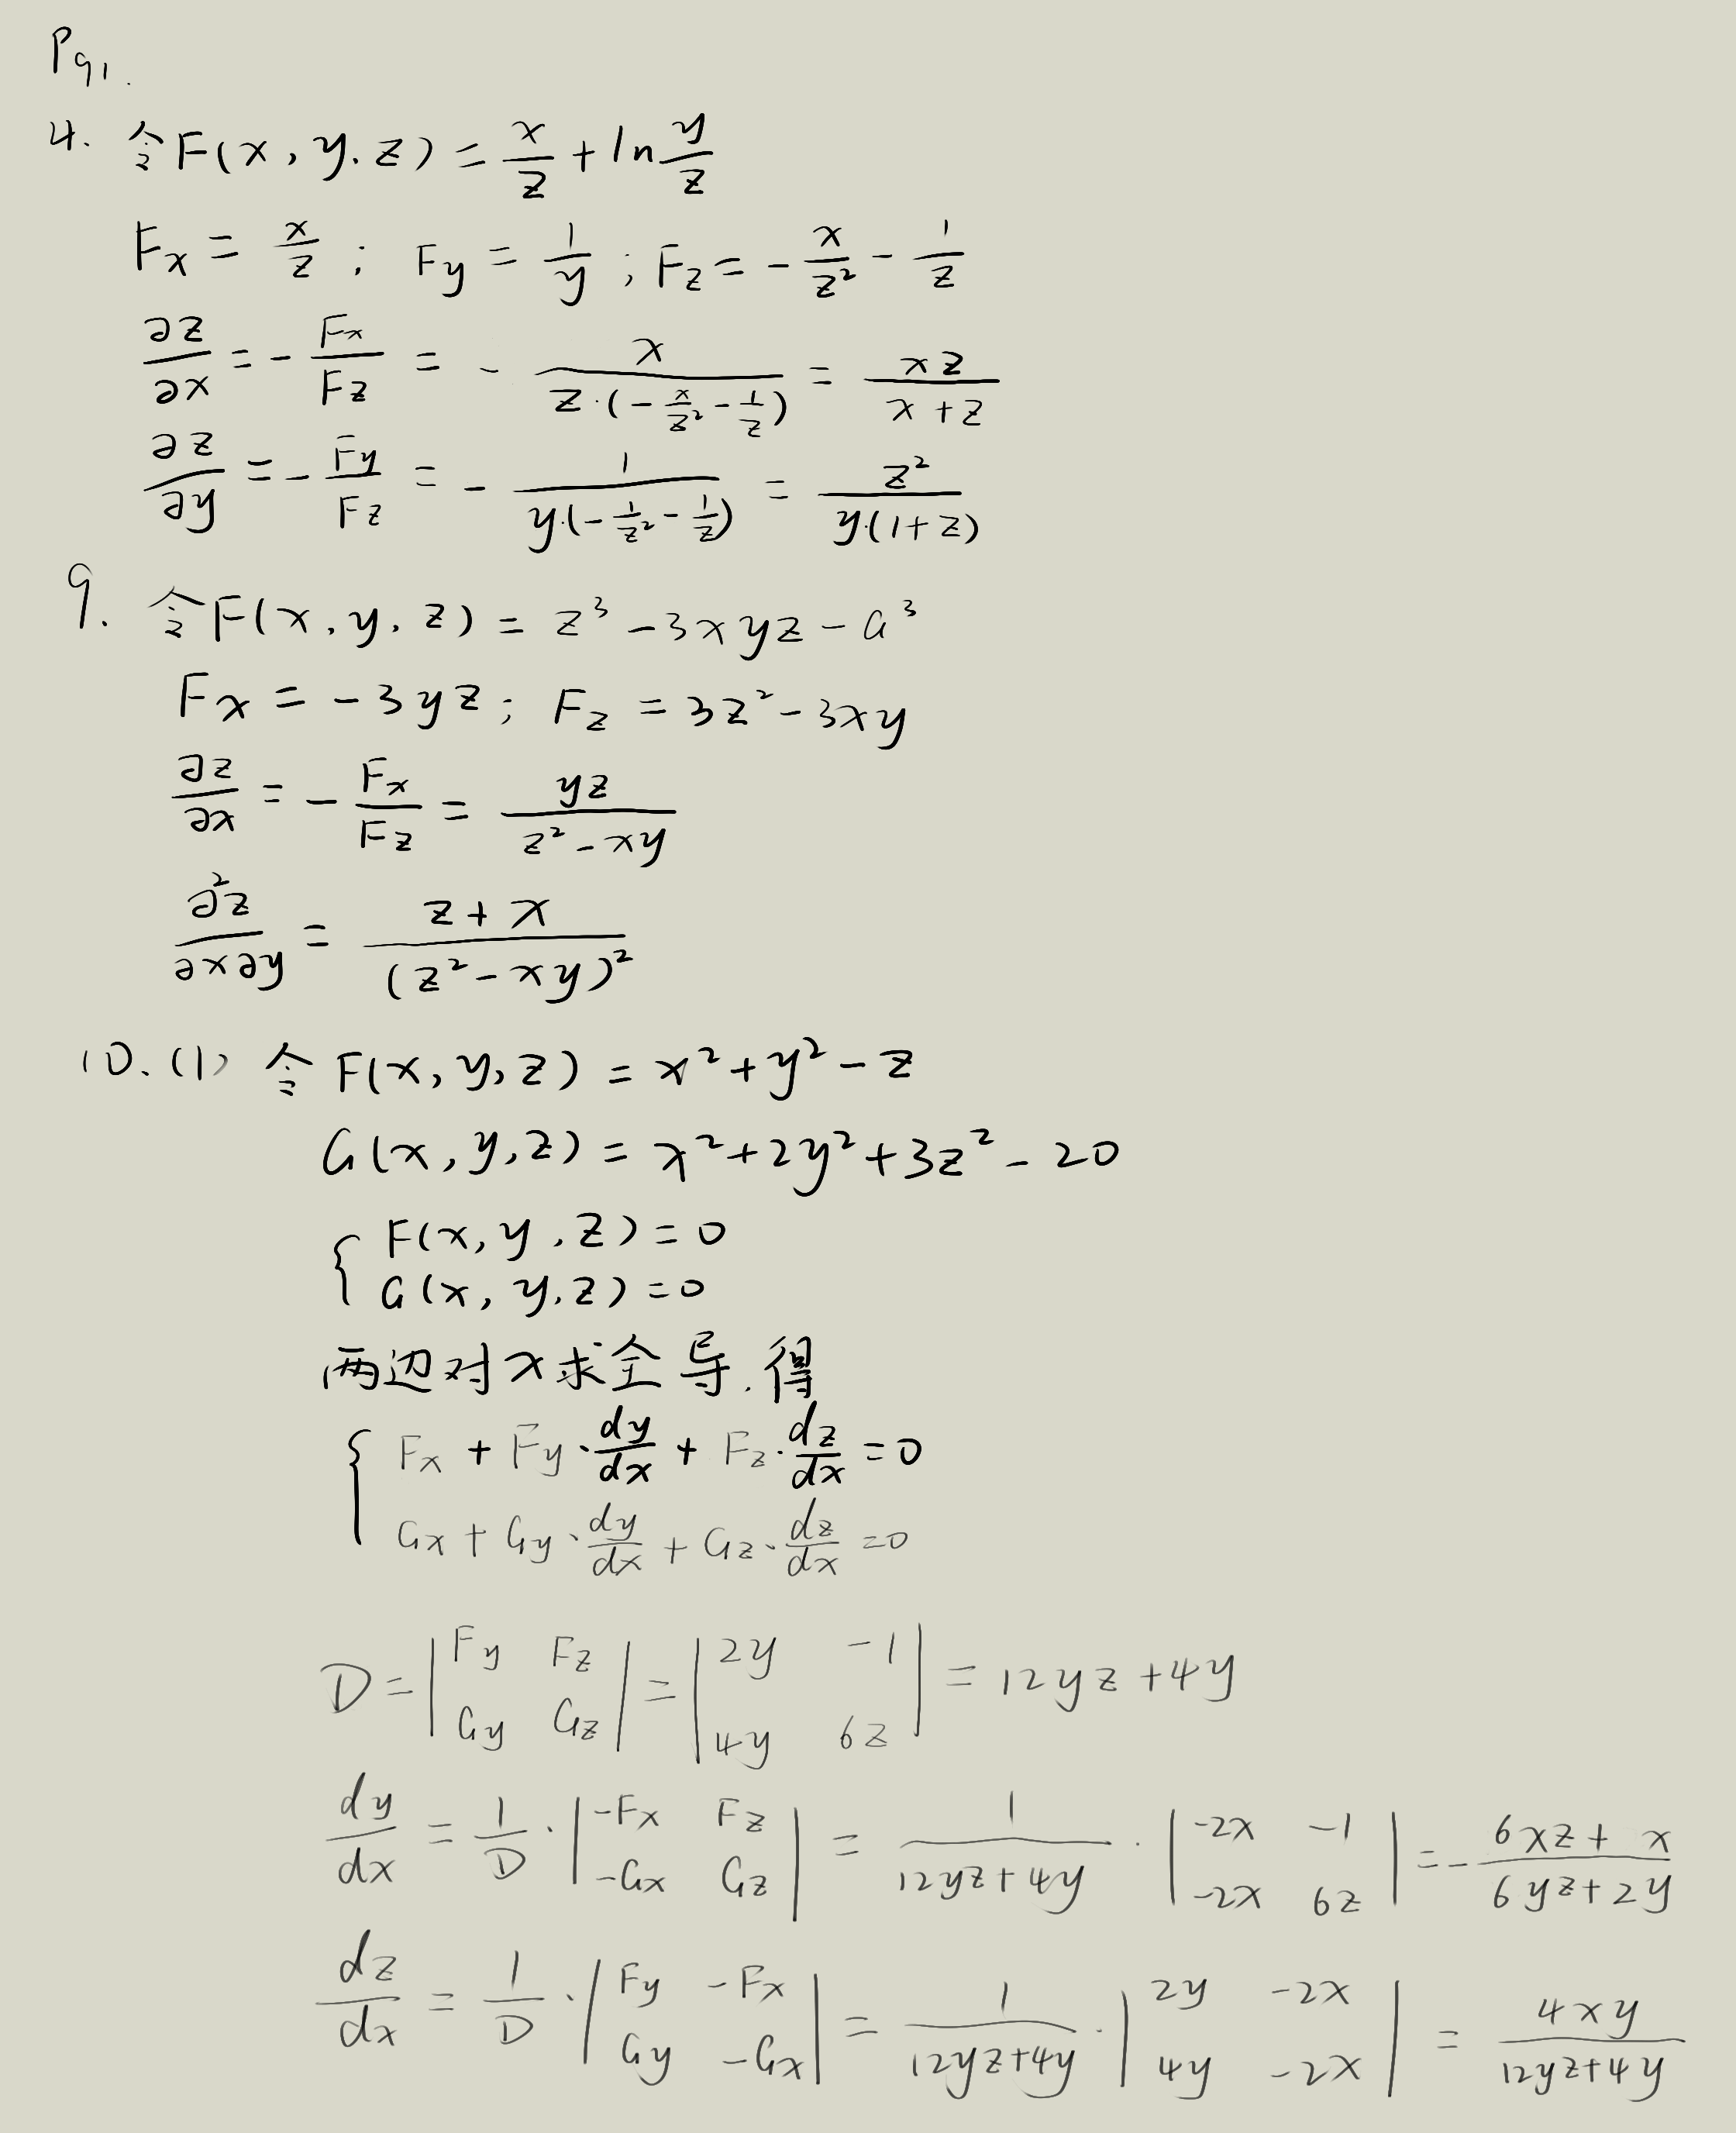 P91.
4. 令F(x, y, z) = x/z + ln y/z
Fx = x/z ; Fy = 1/y ; Fz = - x/z² - 1/z
∂z/∂x = - Fx/Fz = - x/(z·(- x/z² - 1/z)) = xz/(x+z)
∂z/∂y = - Fy/Fz = - 1/(y·(- 1/z² - 1/z)) = z²/(y·(1+z))
9. 令F(x, y, z) = z³ - 3xyz - a³
Fx = -3yz ; Fz = 3z² - 3xy
∂z/∂x = - Fx/Fz = yz/(z² - xy)
∂²z/∂x∂y = (z+x)/(z² - xy)²
10. (1) 令 F(x, y, z) = x² + y² - z
G(x, y, z) = x² + 2y² + 3z² - 20
{ F(x, y, z) = 0
G(x, y, z) = 0
两边对x求全导,得
{ Fx + Fy · dy/dx + Fz · dz/dx = 0
Gx + Gy · dy/dx + Gz · dz/dx = 0
D = | Fy Fz ; Gy Gz | = | 2y -1 ; 4y 6z | = 12yz + 4y
dy/dx = 1/D · | -Fx Fz ; -Gx Gz | = 1/(12yz+4y) · | -2x -1 ; -2x 6z | = - (6xz + x)/(6yz + 2y)
dz/dx = 1/D · | Fy -Fx ; Gy -Gx | = 1/(12yz+4y) · | 2y -2x ; 4y -2x | = 4xy/(12yz+4y)